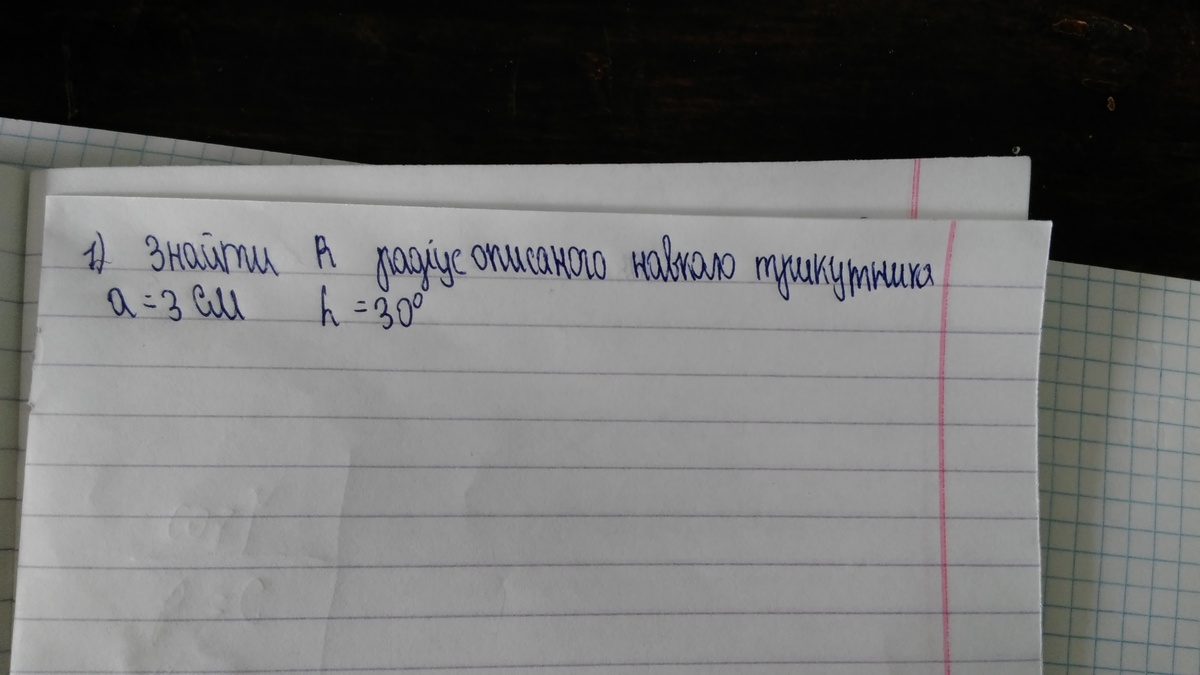 1) Знайти R радіус описаного навколо трикутника
a = 3 см h = 30°